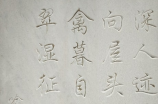 深人迹
向屋头
禽暮自
翠湿征